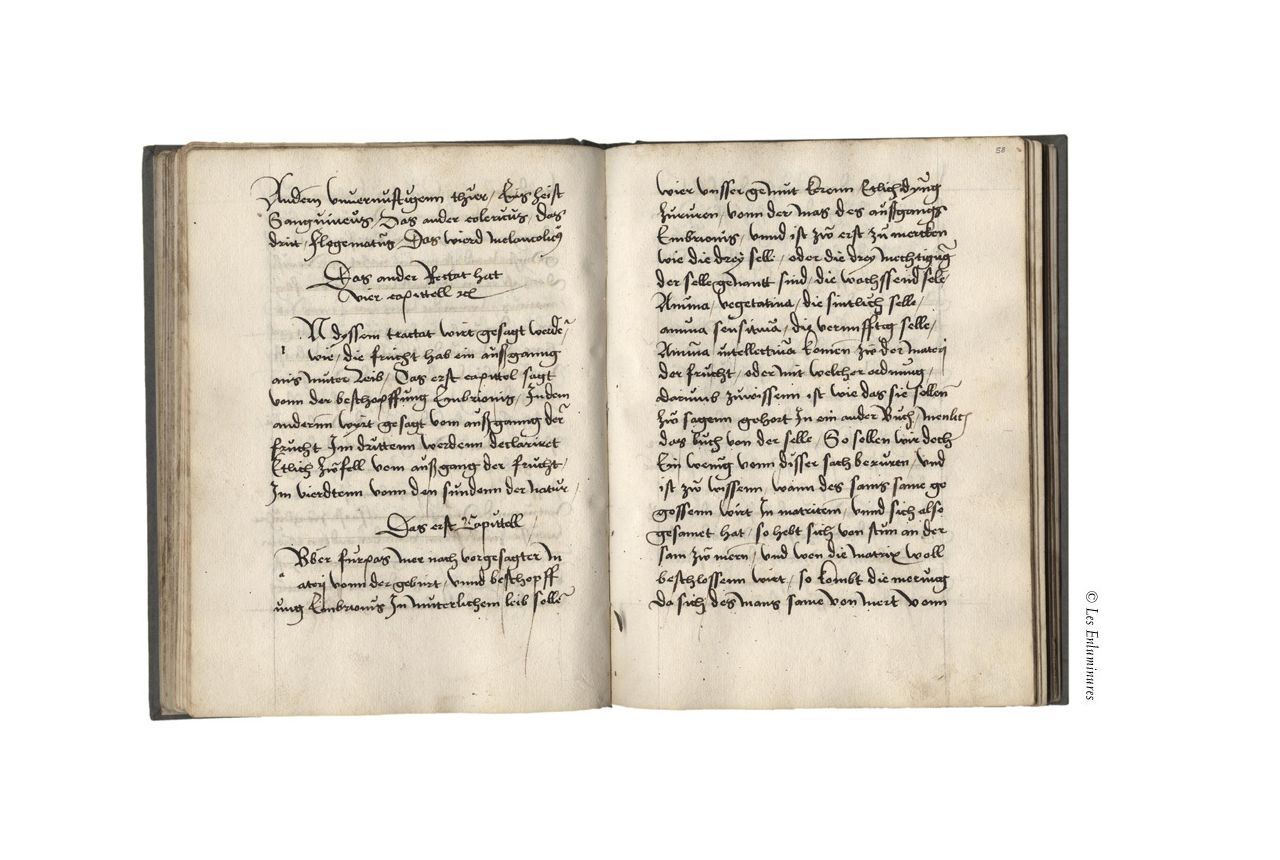 Andern unvernuftigenn thier / Eins heist
Sanguineus / Das ander colericus / das
drit / flegematus / Das vierd melancolicus
Das ander Tractat hat
vier capittell
N dyssem tractat wirt gesagt werde
wie / die frucht hab ein aussganng
aus muter leib / Das erst capittol sagt
vonn der beschopffung Embrionis / In dem
anderenn wirt gesagt vom aussganng der
frucht Im drittenn werdenn declariret
Etlich zwefell vom aussgang der frucht /
Im vierdtenn vonn den sundenn der natur /
Das erst Capittell /
Bber furpas mer nach vorgesagter m
aterj vonn der geburt / unnd beschopff
ung Embrionis In muterlichem leib solle
58
wier unsser gemut keren Etlich dyng
zururen / vonn der mas des aussgangss
Embrionis / unnd ist zw erst zu mercken
wie die drey selle / oder die drey mechtigung
der selle genantt sind / die wachssend sele
Anima / vegetativa / die sintlich selle /
anima sensitiva / die vernufftig selle /
Anima intellectiva komen zw der materj
der frucht / oder mit welcher ordnung /
darumb zuwissenn ist wie das sie sollen
zw sagenn gehort In ein ander Buch / menlich
das buch von der selle / So sollen wir doch
Ein wenig vonn disser sach beruren / und
ist zw wissenn / wann des sams same ge
gossenn wirt In matricem / unnd sich also
gesamet hat / so hebt sich von stun an der
sam zw mern / und wen die matrix woll
beschlossenn wirt / so kombt die merung
da sich des mans same von mert vonn
© Les Enluminures